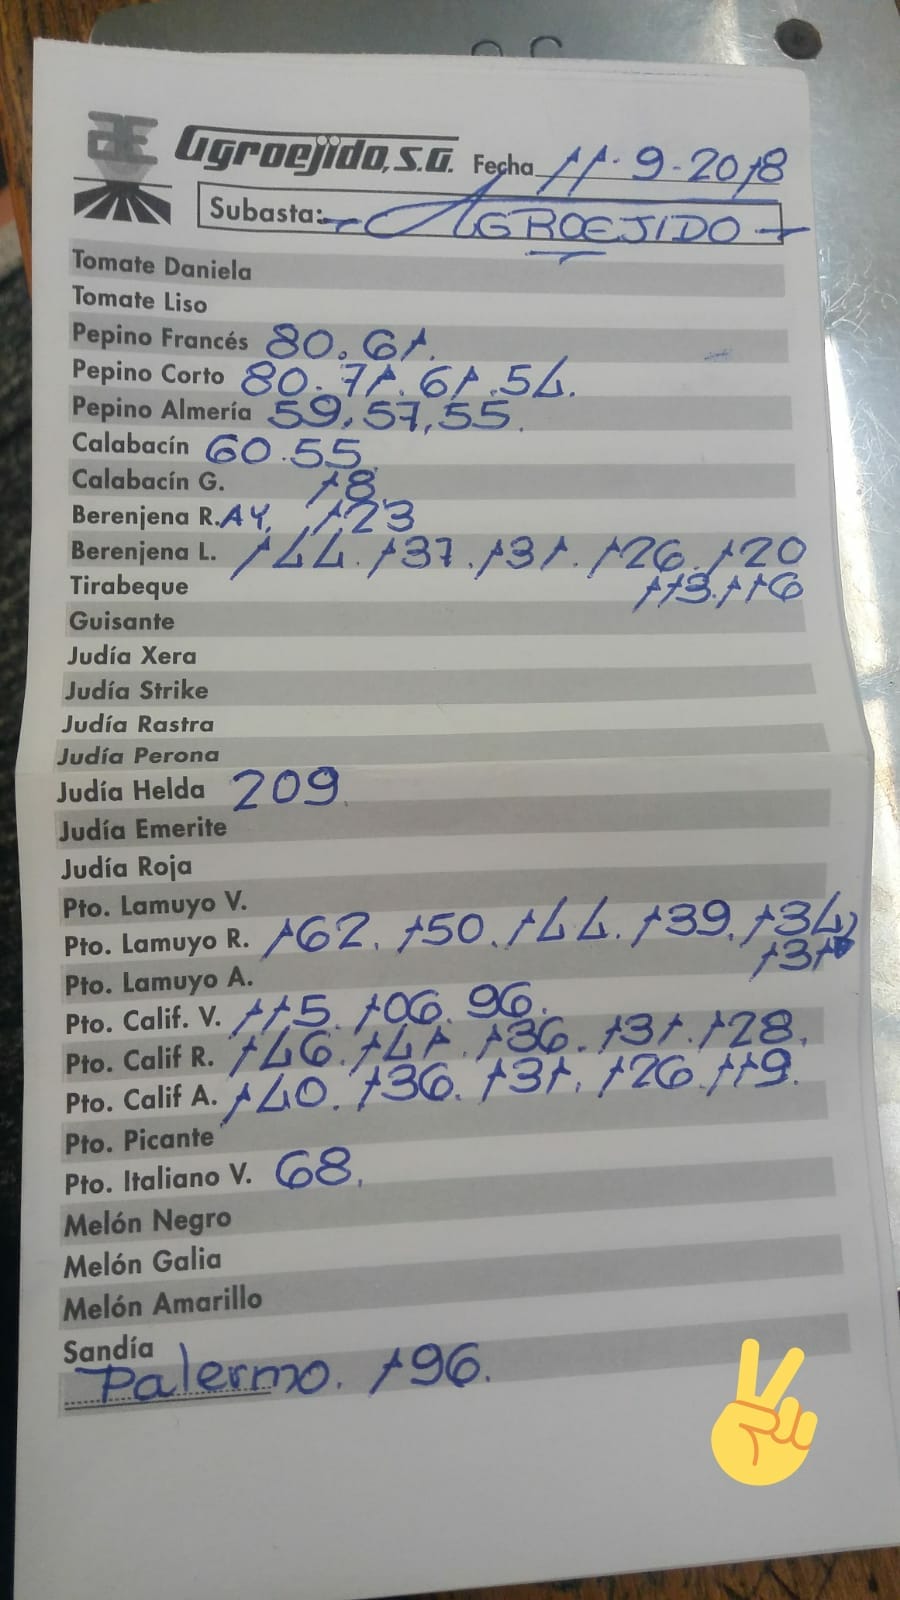 Agroejido, S.A. Fecha 11-9-2018
Subasta: AGROEJIDO
Tomate Daniela
Tomate Liso
Pepino Francés 80. 61.
Pepino Corto 80. 71. 61. 54.
Pepino Almería 59. 57, 55.
Calabacín 60. 55
Calabacín G. 18
Berenjena R.AY. 123
Berenjena L. 144. 137. 131. 126. 120
Tirabeque 113. 116
Guisante
Judía Xera
Judía Strike
Judía Rastra
Judía Perona
Judía Helda 209
Judía Emerite
Judía Roja
Pto. Lamuyo V.
Pto. Lamuyo R. 162. 150. 144. 139. 134
131
Pto. Lamuyo A.
Pto. Calif. V. 115. 106. 96.
Pto. Calif R. 146. 141. 136. 131. 128.
Pto. Calif A. 140. 136. 131. 126. 119.
Pto. Picante
Pto. Italiano V. 68.
Melón Negro
Melón Galia
Melón Amarillo
Sandía
Palermo. 196.